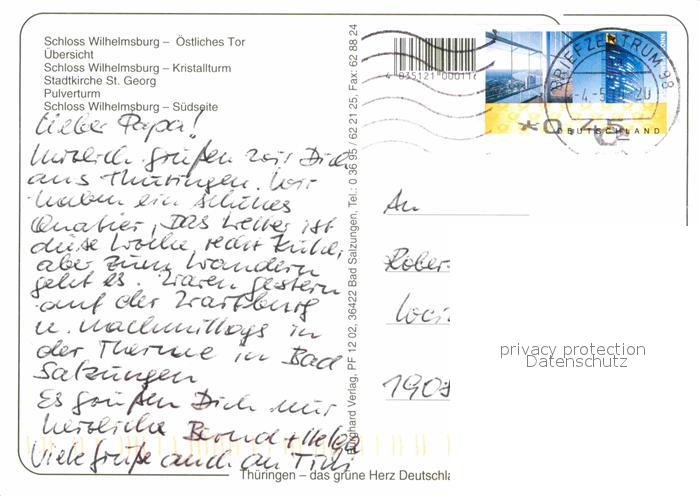 Schloss Wilhelmsburg – Östliches Tor
Übersicht
Schloss Wilhelmsburg – Kristallturm
Stadtkirche St. Georg
Pulverturm
Schloss Wilhelmsburg – Südseite
Lieber Papa!
Herzlich grüßen wir Dich
aus Thüringen. Wir
haben ein schönes
Quatier, Das Wetter ist
diese Woche recht kühl,
aber zum Wandern
geht es. Waren gestern
auf der Wartburg
u. nachmittags in
der Therme in Bad
Salzungen
Es grüßen Dich
herzliche Bernd + Helga
Viele Grüße auch an Tini
Thüringen – das grüne Herz Deutschla
Verlag, PF 12 02, 36422 Bad Salzungen, Tel.: 0 36 95 / 62 21 25, Fax: 62 88 24
4 035121 00011
BRIEFZENTRUM 98
DEUTSCHLAND
An
Rober
1909
privacy protection
Datenschutz